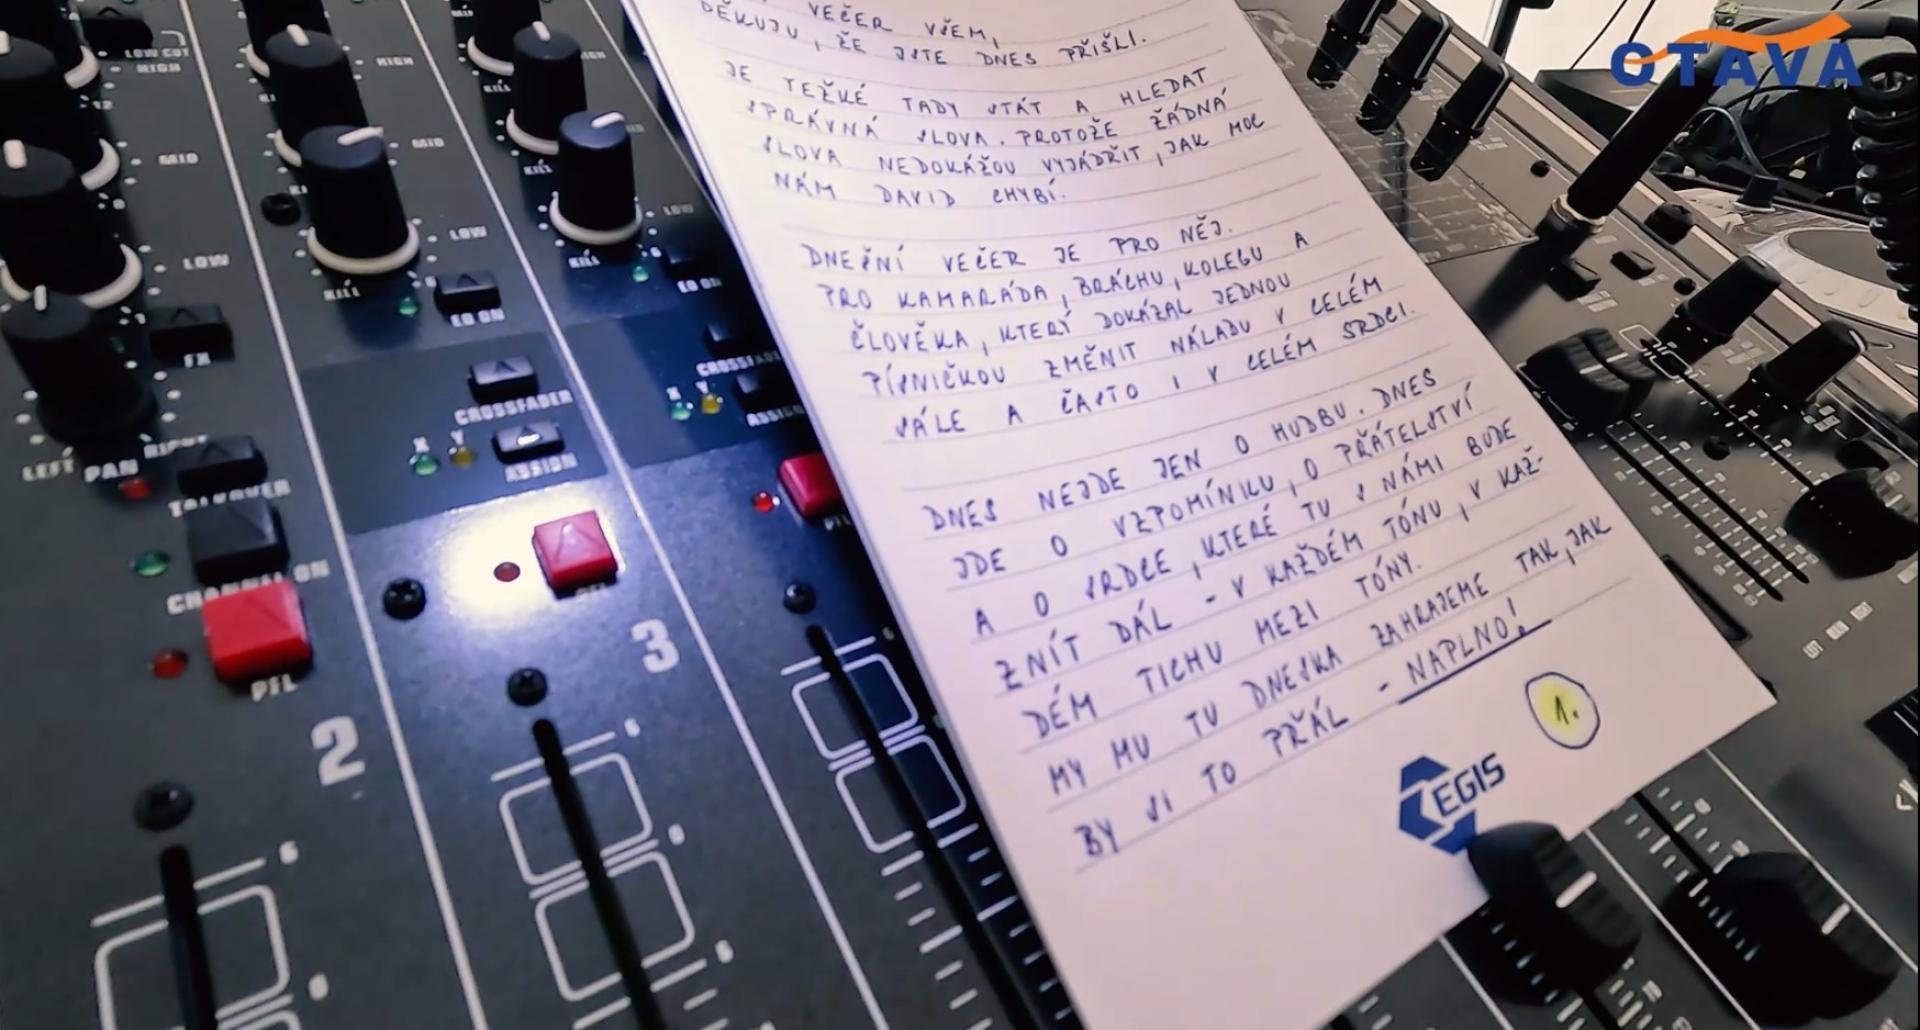 VEČER VŠEM,
DĚKUJU, ŽE JSTE DNES PŘIŠLI.
JE TEŽKÉ TADY STÁT A HLEDAT
SPRÁVNÁ SLOVA. PROTOŽE ŽÁDNÁ
SLOVA NEDOKÁŽOU VYJÁDŘIT, JAK MOC
NÁM DAVID CHYBÍ.
DNEŠNÍ VEČER JE PRO NĚJ.
PRO KAMARÁDA, BRÁCHU, KOLEGU A
ČLOVĚKA, KTERÝ DOKÁZAL JEDNOU
PÍSNIČKOU ZMĚNIT NÁLADU V CELÉM
SÁLE A ČASTO I V CELÉM SRDCI.
DNES NEJDE JEN O HUDBU. DNES
JDE O VZPOMÍNKU, O PŘÁTELSTVÍ
A O SRDCE, KTERÉ TU S NÁMI BUDE
ZNÍT DÁL - V KAŽDÉM TÓNU, V KAŽ-
DÉM TICHU MEZI TÓNY.
MY MU TU DNESKA ZAHRAJEME TAK, JAK
BY SI TO PŘÁL - NAPLNO!
1.
EGIS
OTAVA
LOW CUT
HIGH
MID
LOW
FX
LEFT PAN RIGHT
TALKOVER
CHANNEL ON
PFL
2
HIGH
MID
LOW
KILL
EQ ON
CROSSFADER
X Y
ASSIGN
PFL
3
KILL
LOW
KILL
EQ ON
CROSSFADE
X Y
ASSIGN
PFL